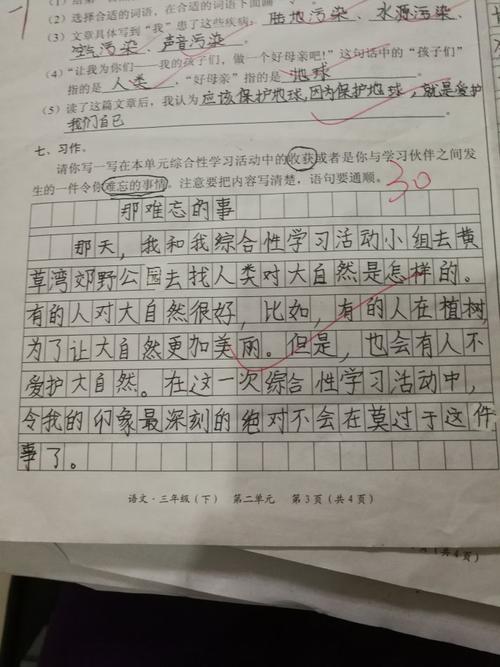 (2) 选择合适的词语，在合适的词语下面画
陆地污染、水源污染、
(3) 文章具体写到“我”患了这些疾病：
空气污染、声音污染。
(4) “让我为你们——我的孩子们，做一个好母亲吧！”这句话中的“孩子们”
指的是 人类 ，“好母亲”指的是 地球
(5) 读了这篇文章后，我认为 应该保护地球，因为保护地球，就是爱护
我们自已
七、习作。
请你写一写在本单元综合性学习活动中的收获或者是你与学习伙伴之间发
生的一件令你难忘的事情。注意要把内容写清楚，语句要通顺。
30
那难忘的事
那天，我和我综合性学习活动小组去黄
草湾郊野公园去找人类对大自然是怎样的。
有的人对大自然很好，比如，有的人在植树，
为了让大自然更加美丽。但是，也会有人不
爱护大自然。在这一次综合性学习活动中，
令我的印象最深刻的绝对不会在莫过于这件
事了。
语文·三年级（下） 第二单元 第3页（共4页）
（共4页）